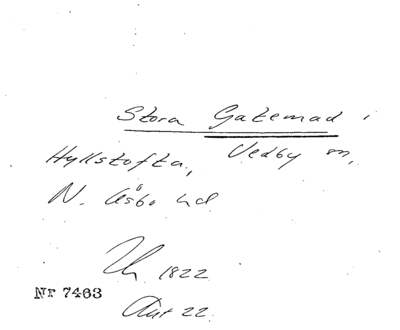 Stora Gatemad i
Hyllstofta, Vedby sn,
N. Åsbo hd
Th 1822
Nr 7463
Aut 22